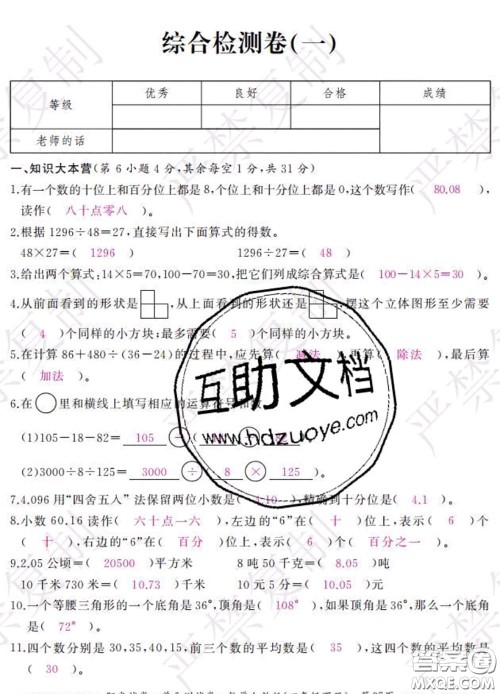 综合检测卷(一)
等级 优秀 良好 合格 成绩
老师的话
一、知识大本营(第 6 小题 4 分,其余每空 1 分,共 31 分)
1.有一个数的十位上和百分位上都是 8,个位上和十分位上都是 0,这个数写作( 80.08 ),
读作( 八十点零八 )。
2.根据 1296÷48=27,直接写出下面算式的得数。
48×27=( 1296 ) 1296÷27=( 48 )
3.给出两个算式:14×5=70,100-70=30,把它们列成综合算式是( 100-14×5=30 )。
4.从前面看到的形状是 ,从上面看到的形状还是 ,摆这个立体图形至少需要
( 4 )个同样的小方块;最多需要( 5 )个同样的小方块。
5.在计算 86+480÷(36-24)的过程中,应先算( 减法 ),再算( 除法 ),最后算
( 加法 )。
6.在○里和横线上填写相应的运算符号和数。
(1)105-18-82= 105 -
(2)3000÷8÷125= 3000 ÷ ( 8 × 125 )
7.4.096 用“四舍五入”法保留两位小数是( 4.10 ),精确到十分位是( 4.1 )。
8.小数 60.16 读作( 六十点一六 ),左边的“6”在( 十 )位上,表示( 6 )个
( 十 ),右边的“6”在( 百分 )位上,表示( 6 )个( 百分之一 )。
9.2.05 公顷=( 20500 )平方米 8 吨 50 千克=( 8.05 )吨
10 千米 730 米=( 10.73 )千米 10 元 5 分=( 10.05 )元
10.一个等腰三角形的一个底角是 36°,顶角是( 108° ),如果顶角是 36°,那么一个底角
是( 72° )。
11.四个数分别是 30,35,40,15,前三个数的平均数是( 35 ),这四个数的平均数是
( 30 )。
严禁复制
互助文档
www.hdzuoye.com
作业帮
MXQE.COM